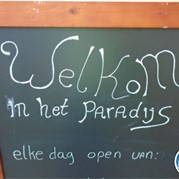 WelKom
In het Paradijs
elke dag open van: